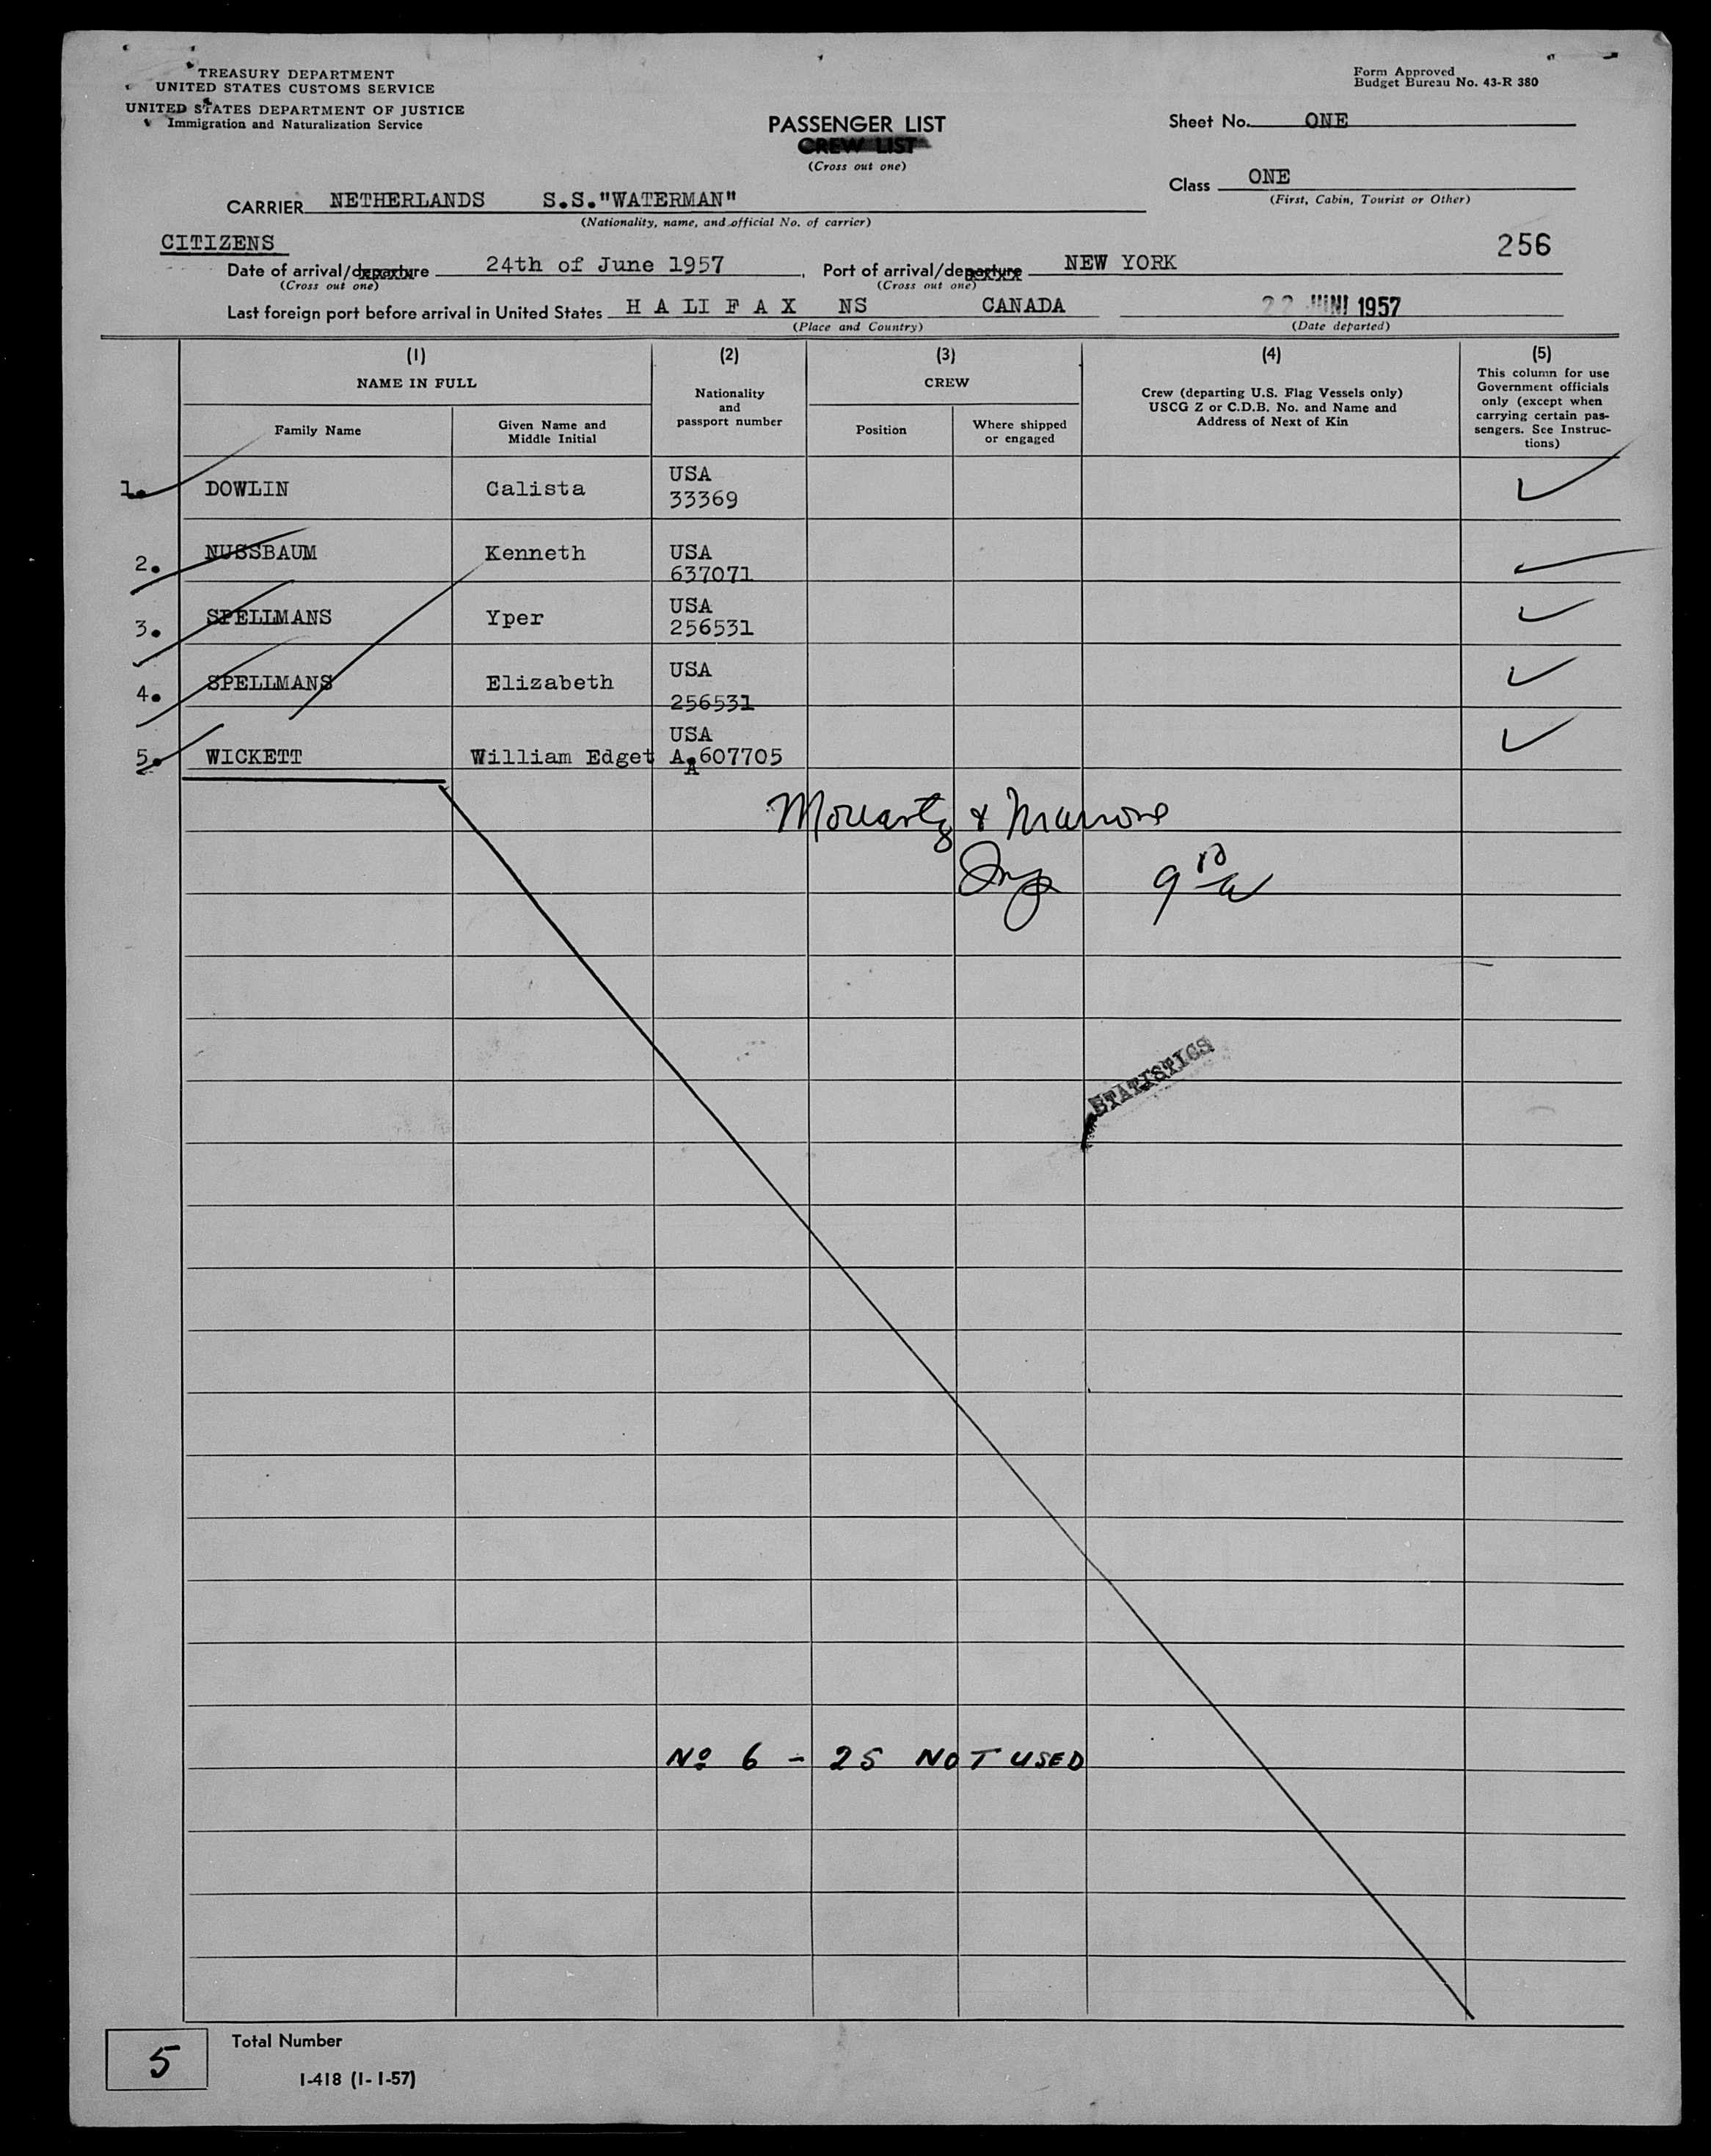 TREASURY DEPARTMENT
UNITED STATES CUSTOMS SERVICE
UNITED STATES DEPARTMENT OF JUSTICE
Immigration and Naturalization Service
Form Approved
Budget Bureau No. 43-R 380
PASSENGER LIST
CREW LIST
(Cross out one)
Sheet No. ONE
Class ONE
(First, Cabin, Tourist or Other)
CARRIER NETHERLANDS S.S."WATERMAN"
(Nationality, name, and official No. of carrier)
CITIZENS
256
Date of arrival/departure 24th of June 1957, Port of arrival/departure NEW YORK
(Cross out one) (Cross out one)
Last foreign port before arrival in United States HALIFAX NS CANADA 22 JUNI 1957
(Place and Country) (Date departed)
(1) (2) (3) (4) (5)
NAME IN FULL
Family Name
Given Name and
Middle Initial
Nationality
and
passport number
CREW
Position
Where shipped
or engaged
Crew (departing U.S. Flag Vessels only)
USCG Z or C.D.B. No. and Name and
Address of Next of Kin
This column for use
Government officials
only (except when
carrying certain pas-
sengers. See Instruc-
tions)
1. DOWLIN Calista USA
33369
2. NUSSBAUM Kenneth USA
637071
3. SPELLMANS Yper USA
256531
4. SPELLMANS Elizabeth USA
256531
5. WICKETT William Edget USA
A.607705
A
Moriarty &
STATISTICS
No 6 - 25 NOT USED
5 Total Number
I-418 (1-1-57)